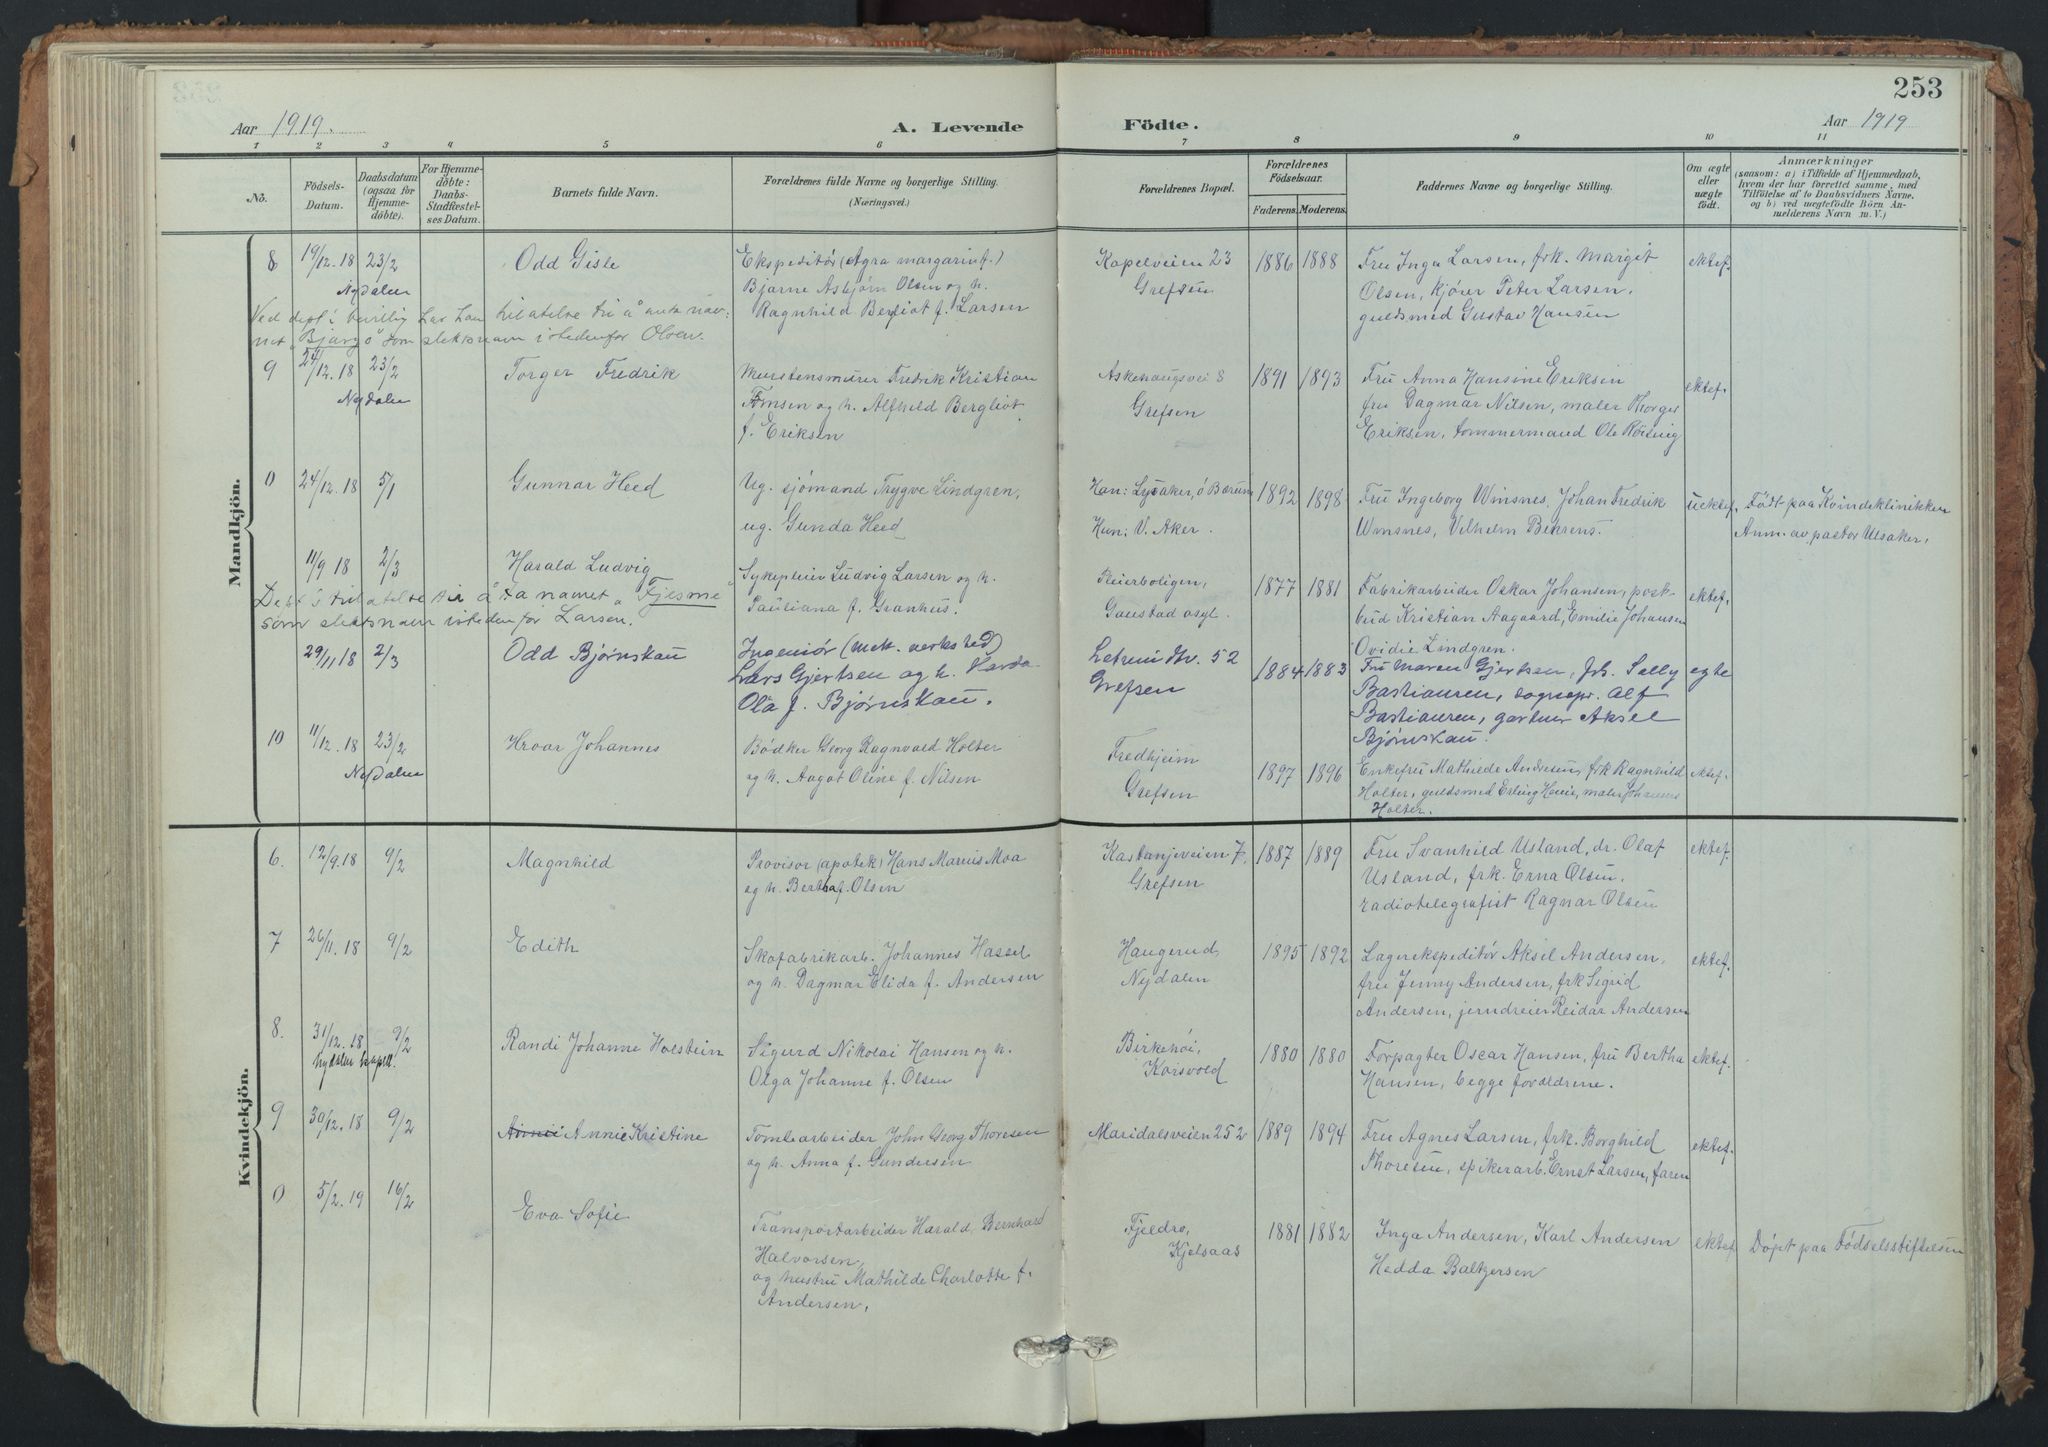 253
Aar 1919.
A. Levende
Födte.
Aar 1919
1 2 3 4 5 6 7 8 9 10 11
No.
Födsels-
Datum.
Daabsdatum
(ogsaa for
Hjemme-
döbte).
For Hjemme-
döbte:
Daabs-
Stadfæstel-
ses Datum.
Barnets fulde Navn.
Forældrenes fulde Navne og borgerlige Stilling.
(Næringsvei.)
Forældrenes Bopæl.
Forældrenes
Födselsaar.
Faderens. Moderens.
Faddernes Navne og borgerlige Stilling.
Om ægte
eller
uægte
födt.
Anmærkninger
(saasom: a) i Tilfælde af Hjemmedaab,
hvem der har forrettet samme, med
Tilföielse af to Daabsvidners Navne.
og b) ved uægtefödte Börn An-
melderens Navn m. V.)
Mandkjön.
8 19/12.18 23/2 Odd Gisle
Nydalen
Ekspeditör (Agra margarinf.)
Bjarne Asbjörn Olsen og h.
Ragnhild Bergliot f. Larsen
Kapelveien 23
Grefsen
1886 1888
Fru Inga Larsen, frk. Margit
Olsen, kjörer Peter Larsen.
guldsmed Gustav Hansen
ektef.
Ved dept's bevillig har han tilatelse til å anta nav-
net "Bjargö" som slektsnavn istedenfor Olsen.
9 24/12.18 23/2 Torger Fredrik
Nydalen
Murstensmurer Fredrik Kristian
Tomsen og h. Alfhild Bergliot
f. Eriksen
Askehaugsvei 8
Grefsen
1891 1893
Fru Anna Hansine Eriksen
fru Dagmar Nilsen, maler Thorger
Eriksen, tommermand Ole Röisnig
ektef.
0 24/12.18 5/1 Gunnar Heed
Ug. sjömand Trygve Lindgren,
ug. Gunda Heed
Han: Lysaker, ö Bærum
Hun: V. Aker.
1892 1898
Fru Ingeborg Winsnes, Johan Fredrik
Winsnes, Vilhelm Behrens.
uektef.
Födt paa Kvindeklinikken
Anm. av pastor Ulsaker.
11/9 18 2/3 Harald Ludvig
Sykepleier Ludvig Larsen og h.
Pauliana f. Granhus.
Pleierboligen,
Gaustad asyl.
1877 1881
Fabrikarbeider Oskar Johansen, post-
bud Kristian Aagaard, Emilie Johansen
Ovidie Lindgren.
ektef.
Dept's tilatelse til å ta namet "Fjesme"
som slektsnavn isteden for Larsen.
29/11 18 2/3 Odd Bjørnskau
Ingeniør (mek. verksted)
Lars Gjertsen og h. Harda
Ola f. Bjørnskau.
52
Grefsen
1884 1883
Fru Maren Gjertsen, frk. Selly
Bastiansen, sognepr. Alf
Bastiansen, gartner Aksel
Bjørnskau.
egte
10 11/12.18 23/2 Hroar Johannes
Nydalen
Bödker Georg Ragnvald Holter
og h. Aagot Oline f. Nilsen
Fredhjeim
Grefsen
1897 1896
Enkefru Mathilde Andresen, frk Ragnhild
Holter, guldsmed Erling Heuir, maler Johannes
Holter.
ektef.
Kvindekjön.
6. 12/9.18 9/2 Magnhild
Provisor (apotek) Hans Marius Moa
og h. Bertha f. Olsen
Kastanjeveien 7.
Grefsen
1887 1889
Fru Svanhild Usland, dr. Olaf
Usland, frk. Erna Olsen.
radiotelegrafist Ragnar Olsen
ektef.
7 26/11.18 9/2 Edith
Skofabrikarb. Johannes Hassel
og h. Dagmar Elida f. Andersen
Haugerud,
Nydalen
1895 1892
Lagerekspeditör Aksel Andersen,
fru Jenny Andersen, frk Sigrid
Andersen, jerndreier Reidar Andersen
ektef.
8. 31/12.18 9/2 Randi Johanne Holstein
Nydalen kapell.
Sigurd Nikolai Hansen og h.
Olga Johanne f. Olsen
Birkehöi,
Korsvold
1880 1880
Forpagter Oscar Hansen, fru Bertha
Hansen, begge forældrene.
ektef.
9 30/12.18 9/2 Annie Kristine
Tomtearbeider John Georg Thoresen
og h. Anna f. Gundersen
Maridalsveien 252
1889 1894
Fru Agnes Larsen, frk. Borghild
Thoresen, spikerarb. Ernst Larsen, faren
ektef.
0 5/2.19 16/2 Eva Sofie
Transportarbeider Harald Bernhard
Halvorsen,
og hustru Mathilde Charlotte f.
Andersen.
Fjeldro,
Kjelsaas
1881 1882
Inga Andersen, Karl Andersen
Hedda Baltzersen
ektef
Döpt paa Födselsstiftelsen